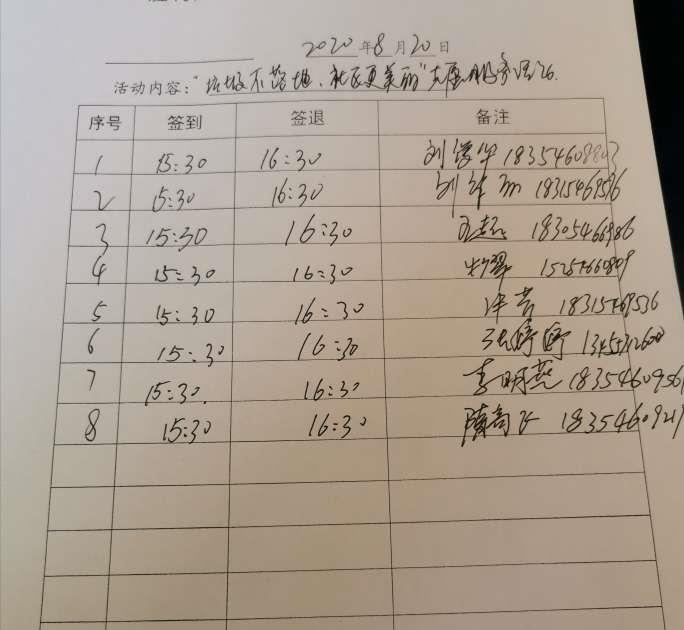 2020年8月20日
活动内容：“垃圾不落地、社区更美丽”志愿服务活动.
序号 签到 签退 备注
1 15:30 16:30 18354608843
2 15:30 16:30 刘 18315469536
3 15:30 16:30 王超 18305466986
4 15:30 16:30 15254660809
5 15:30 16:30 许芳 18315469536
6 15:30 16:30 张婷婷
7 15:30. 16:30 李明燕 1835460956
8 15:30 16:30 隋 1835460921